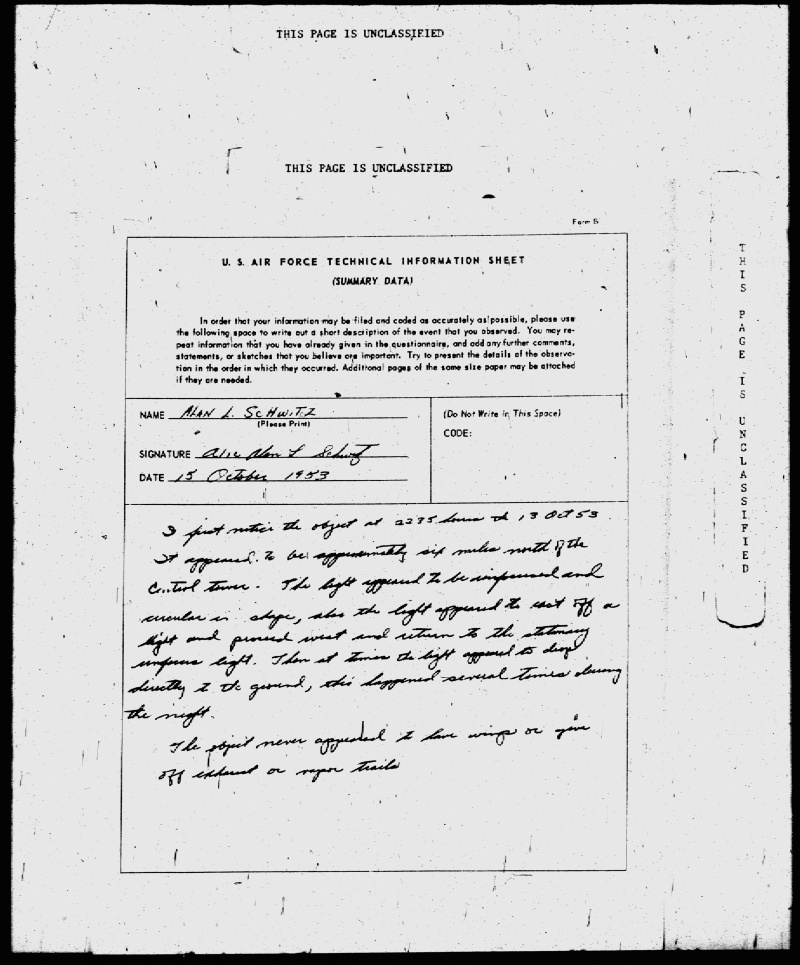 THIS PAGE IS UNCLASSIFIED
THIS PAGE IS UNCLASSIFIED
Form B
U. S. AIR FORCE TECHNICAL INFORMATION SHEET
(SUMMARY DATA)
In order that your information may be filed and coded as accurately as possible, please use
the following space to write out a short description of the event that you observed. You may re-
peat information that you have already given in the questionnaire, and add any further comments,
statements, or sketches that you believe are important. Try to present the details of the observa-
tion in the order in which they occurred. Additional pages of the same size paper may be attached
if they are needed.
NAME ALAN L. SCHWITZ
(Please Print)
SIGNATURE a/1c Alan L
DATE 15 October 1953
(Do Not Write in This Space)
CODE:
I first notice the object at 2235 hours 13 Oct 53
It appeared to be approximately six miles north of the
Control tower. The light appeared to be and
circular in shape, also the light appeared to cast off a
light and proceed west and return to the stationary
light. Then at times the light appeared to drop
directly to the ground, this happened several times during
the night.
The object never appeared to have wings or give
off exhaust or vapor trails
THIS PAGE IS UNCLASSIFIED